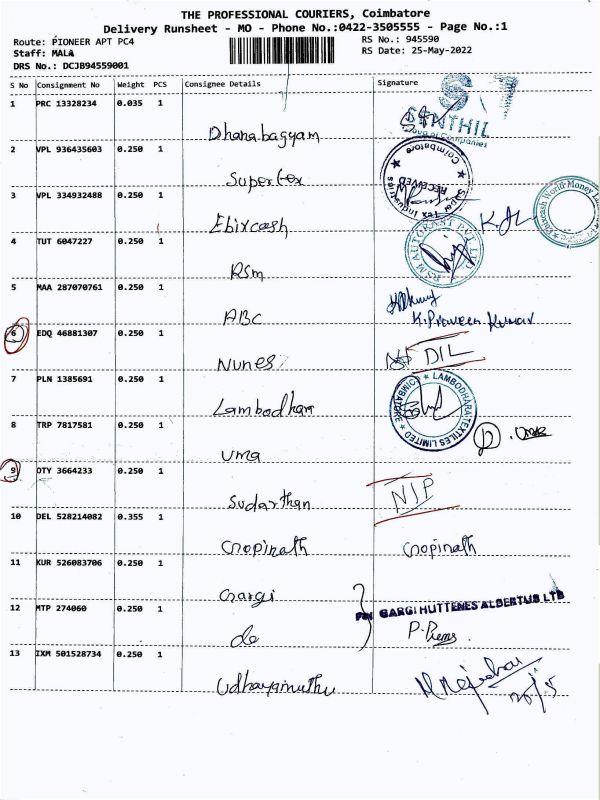 THE PROFESSIONAL COURIERS, Coimbatore
Delivery Runsheet - MO - Phone No.:0422-3505555 - Page No.:1
Route: PIONEER APT PC4
Staff: MALA
DRS No.: DCJB94559001
RS No.: 945590
RS Date: 25-May-2022
S No Consignment No Weight PCS Consignee Details Signature
1 PRC 13328234 0.035 1
Dhanabagyam
SENTHIL
Group of Companies
2 VPL 936435603 0.250 1
Supertex
Super Tex Industries
RECEIVED
Coimbatore
3 VPL 334932488 0.250 1
Ebixcash
Ebixcash World Money
4 TUT 6047227 0.250 1
RSM
RSM AUTOKAST PVT LTD
5 MAA 287070761 0.250 1
ABC
K. Praveen Kumar
6 EDQ 46881307 0.250 1
Nunes
DIL
7 PLN 1385691 0.250 1
Lambodhara
LAMBODHARA TEXTILES LIMITED
COIMBATORE
8 TRP 7817581 0.250 1
Uma
9 OTY 3664233 0.250 1
Sudarthan
NIP
10 DEL 528214082 0.355 1
Gopinath
Gopinath
11 KUR 526083706 0.250 1
Gargi
For GARGI HUTTENES ALBERTUS LTD
12 MTP 274060 0.250 1
do
P. Prems.
13 IXM 501528734 0.250 1
Udhayamuthu